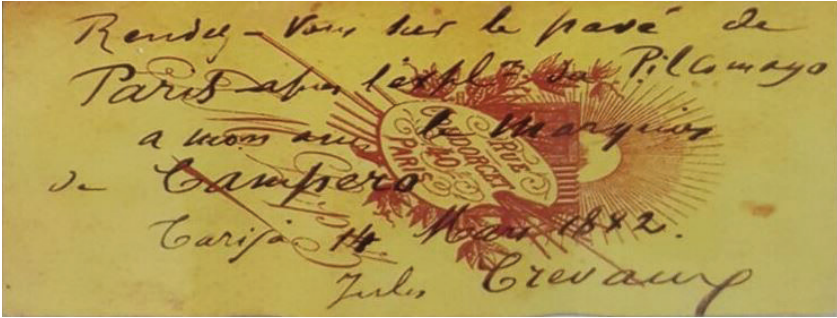 Rendez-vous sur le pavé de
Paris après l'explon du Pilcomayo
a mon ami le Marquis
de Campero
Tarija 14 Mars 1882.
Jules Crevaux
RUE
CONDORCET
40
PARIS